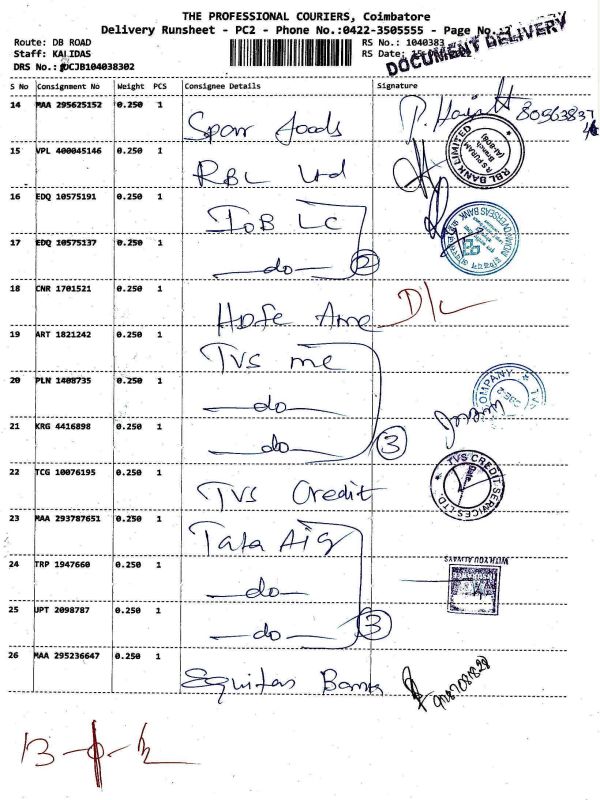 THE PROFESSIONAL COURIERS, Coimbatore
Delivery Runsheet - PC2 - Phone No.:0422-3505555 - Page No.:
Route: DB ROAD
RS No.: 1040383
Staff: KALIDAS
RS Date:
DOCUMENT DELIVERY
DRS No.: CJB104038302
S No Consignment No Weight PCS Consignee Details Signature
14 MAA 295625152 0.250 1 Spar foods
15 VPL 400045146 0.250 1 RBL Ltd
RBL BANK LIMITED
R S PURAM
Branch
16 EDQ 10575191 0.250 1 IOB LC
17 EDQ 10575137 0.250 1 —do— 2
OVERSEAS BANK
18 CNR 1701521 0.250 1 Hdfc Ame D/L
19 ART 1821242 0.250 1 TVS me
20 PLN 1408735 0.250 1 —do—
COMPANY
21 KRG 4416898 0.250 1 —do— 3
22 TCG 10076195 0.250 1 TVS Credit
TVS CREDIT SERVICES LTD.
23 MAA 293787651 0.250 1 Tata Aig
24 TRP 1947660 0.250 1 —do—
WITH YOU ALWAYS
25 UPT 2098787 0.250 1 —do— 3
26 MAA 295236647 0.250 1 Equitas Bank